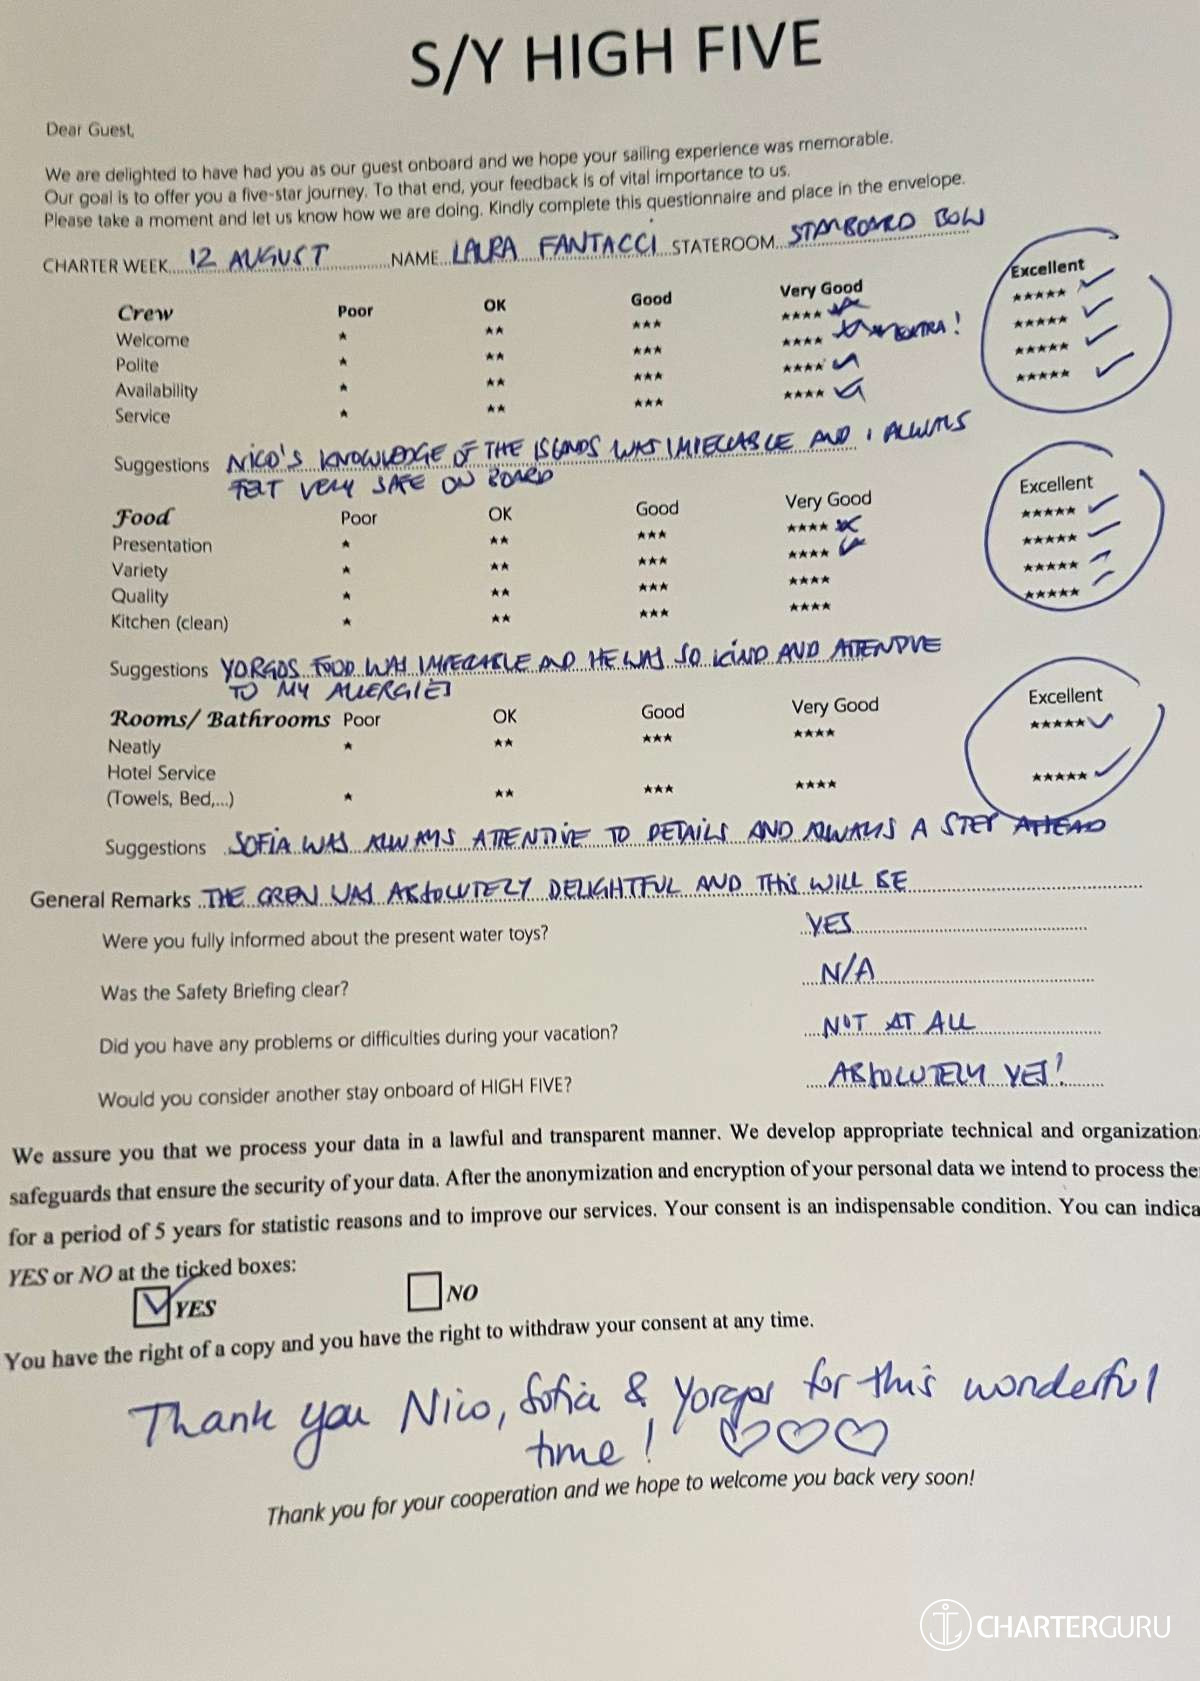 S/Y HIGH FIVE
Dear Guest,
We are delighted to have had you as our guest onboard and we hope your sailing experience was memorable.
Our goal is to offer you a five-star journey. To that end, your feedback is of vital importance to us.
Please take a moment and let us know how we are doing. Kindly complete this questionnaire and place in the envelope.
CHARTER WEEK 12 AUGUST NAME LAURA FANTACCI STATEROOM STARBOARD BOW
Crew Poor OK Good Very Good Excellent
Welcome ★ ★★ ★★★ ★★★★ ★★★★★ ✓
Polite ★ ★★ ★★★ ★★★★ EXTRA! ★★★★★ ✓
Availability ★ ★★ ★★★ ★★★★ ★★★★★ ✓
Service ★ ★★ ★★★ ★★★★ ★★★★★ ✓
Suggestions NICO'S KNOWLEDGE OF THE ISLANDS WAS IMPECCABLE AND I ALWAYS
FELT VERY SAFE ON BOARD
Food Poor OK Good Very Good Excellent
Presentation ★ ★★ ★★★ ★★★★ ★★★★★ ✓
Variety ★ ★★ ★★★ ★★★★ ★★★★★ ✓
Quality ★ ★★ ★★★ ★★★★ ★★★★★ ✓
Kitchen (clean) ★ ★★ ★★★ ★★★★ ★★★★★ ✓
Suggestions YORGOS FOOD WAS IMPECCABLE AND HE WAS SO KIND AND ATTENTIVE
TO MY ALLERGIES
Rooms/ Bathrooms Poor OK Good Very Good Excellent
Neatly ★ ★★ ★★★ ★★★★ ★★★★★ ✓
Hotel Service
(Towels, Bed,...) ★ ★★ ★★★ ★★★★ ★★★★★ ✓
Suggestions SOFIA WAS ALWAYS ATTENTIVE TO DETAILS AND ALWAYS A STEP AHEAD
General Remarks THE CREW WAS ABSOLUTELY DELIGHTFUL AND THIS WILL BE
Were you fully informed about the present water toys? YES
Was the Safety Briefing clear? N/A
Did you have any problems or difficulties during your vacation? NOT AT ALL
Would you consider another stay onboard of HIGH FIVE? ABSOLUTELY YES!
We assure you that we process your data in a lawful and transparent manner. We develop appropriate technical and organization
safeguards that ensure the security of your data. After the anonymization and encryption of your personal data we intend to process the
for a period of 5 years for statistic reasons and to improve our services. Your consent is an indispensable condition. You can indica
YES or NO at the ticked boxes:
✓ YES NO
You have the right of a copy and you have the right to withdraw your consent at any time.
Thank you Nico, Sofia & Yorgos for this wonderful
time! ♡♡♡
Thank you for your cooperation and we hope to welcome you back very soon!
CHARTERGURU